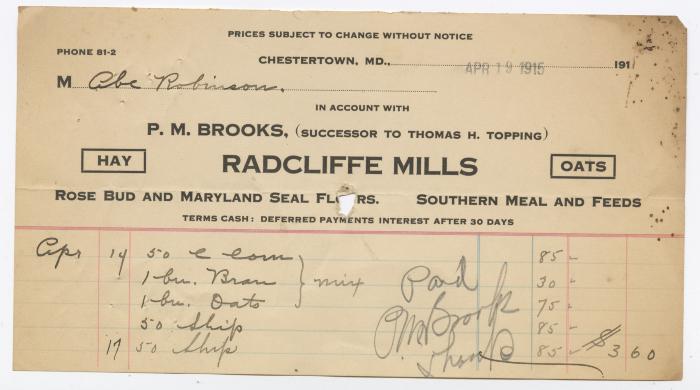 PRICES SUBJECT TO CHANGE WITHOUT NOTICE
PHONE 81-2
CHESTERTOWN, MD., APR 19 1915 191
M Abe Robinson.
IN ACCOUNT WITH
P. M. BROOKS, (SUCCESSOR TO THOMAS H. TOPPING)
HAY RADCLIFFE MILLS OATS
ROSE BUD AND MARYLAND SEAL FL RS. SOUTHERN MEAL AND FEEDS
TERMS CASH: DEFERRED PAYMENTS INTEREST AFTER 30 DAYS
Apr 14 50 C Corn 85
1 bu. Bran } mix 30
1 bu. Oats 75
50 Ship 85
17 50 Ship 85 $3 60
Paid
PM Brooks
Thanks